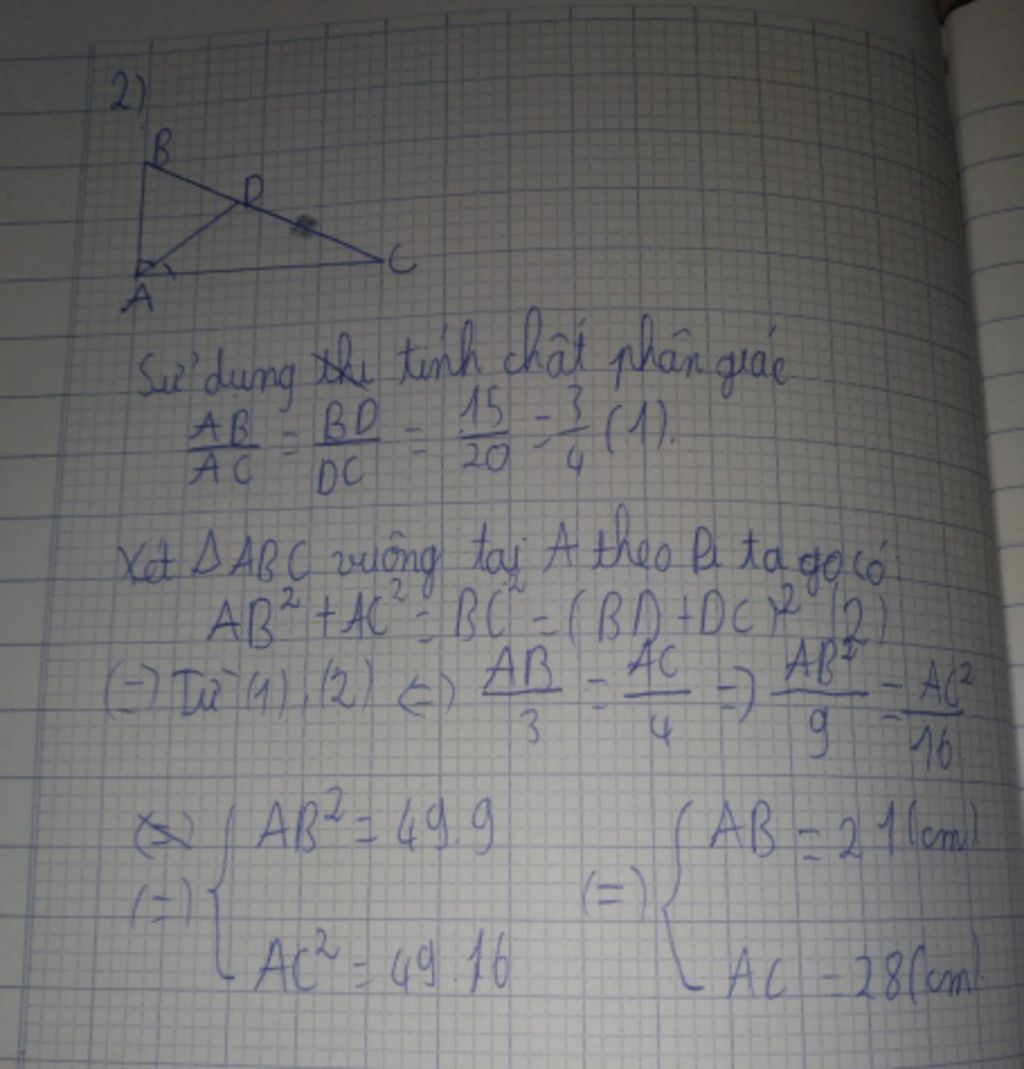 2)
B
D
C
A
Sử dụng tính chất phân giác
AB/AC = BD/DC = 15/20 = 3/4 (1).
Xét ΔABC vuông tại A theo Pi ta go có
AB² + AC² = BC² = (BD + DC)² (2)
(=) Từ (1), (2) <=> AB/3 = AC/4 => AB²/9 = AC²/16
(=) { AB² = 49.9 (=) { AB = 21 (cm)
AC² = 49.16 AC = 28 (cm)